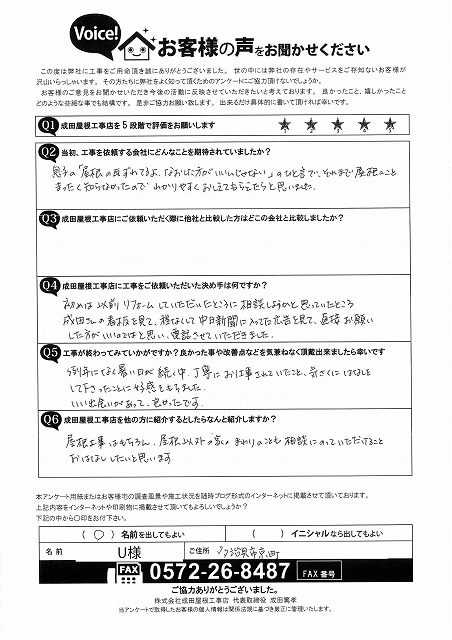 Voice!
お客様の声をお聞かせください
この度は弊社に工事をご用命頂き誠にありがとうございました。 世の中には弊社の存在やサービスをご存知ないお客様が
沢山いらっしゃいます。 その方たちに弊社をよく知って頂くためのアンケートにご協力頂けないでしょうか。
お客様のご意見をお聞かせいただき今後の活動に反映させていただきたいと考えております。 良かったこと、嬉しかったこと
どのような些細な事でも結構です。 是非ご協力お願い致します。 出来るだけ具体的に書いて頂ければ幸いです。
Q1 成田屋根工事店を5段階で評価をお願いします
1 2 3 4 5
Q2 当初、工事を依頼する会社にどんなことを期待されていましたか?
息子の「屋根の瓦ずれてるよ、なおした方がいいんじゃない」のひと言で、それまで屋根のこと
まったく知らなかったので わかりやすくおしえてもらえたらと思いました。
Q3 成田屋根工事店にご依頼いただく際に他社と比較した方はどこの会社と比較しましたか?
Q4 成田屋根工事店に工事をご依頼いただいた決め手は何ですか?
初めは以前リフォームしていただいたところに相談しようかと思っていたところ
成田さんの看板を見て、程なくして中日新聞に入ってた広告を見て、直接お願い
した方がいいのではと思い、電話させていただきました。
Q5 工事が終わってみていかがですか?良かった事や改善点などを気兼ねなく頂戴出来ましたら幸いです
例年になく暑い日が続く中、丁寧にお仕事されていたこと、気さくにはなしを
して下さったことに好感をもちました。
いい出会いがあって、良かったです。
Q6 成田屋根工事店を他の方に紹介するとしたらなんと紹介しますか?
屋根工事はもちろん、屋根以外の家のまわりのことも相談にのっていただけること
おはなししたいと思います。
本アンケート用紙またはお客様宅の調査風景や施工状況を随時ブログ形式のインターネットに掲載させて頂いております。
上記内容をインターネットや印刷物に掲載させて頂いてもよろしいでしょうか?
下記の中から○印をお付下さい。
( ○ ) 名前を出してもよい ( ) イニシャルなら出してもよい
名前 U様 ご住所 多治見市京町
FAX 0572-26-8487 FAX番号
ご協力ありがとうございました。
株式会社成田屋根工事店 代表取締役 成田篤孝
当アンケートで取得したお客様の個人情報は関係法規に基づき厳正に管理いたします。